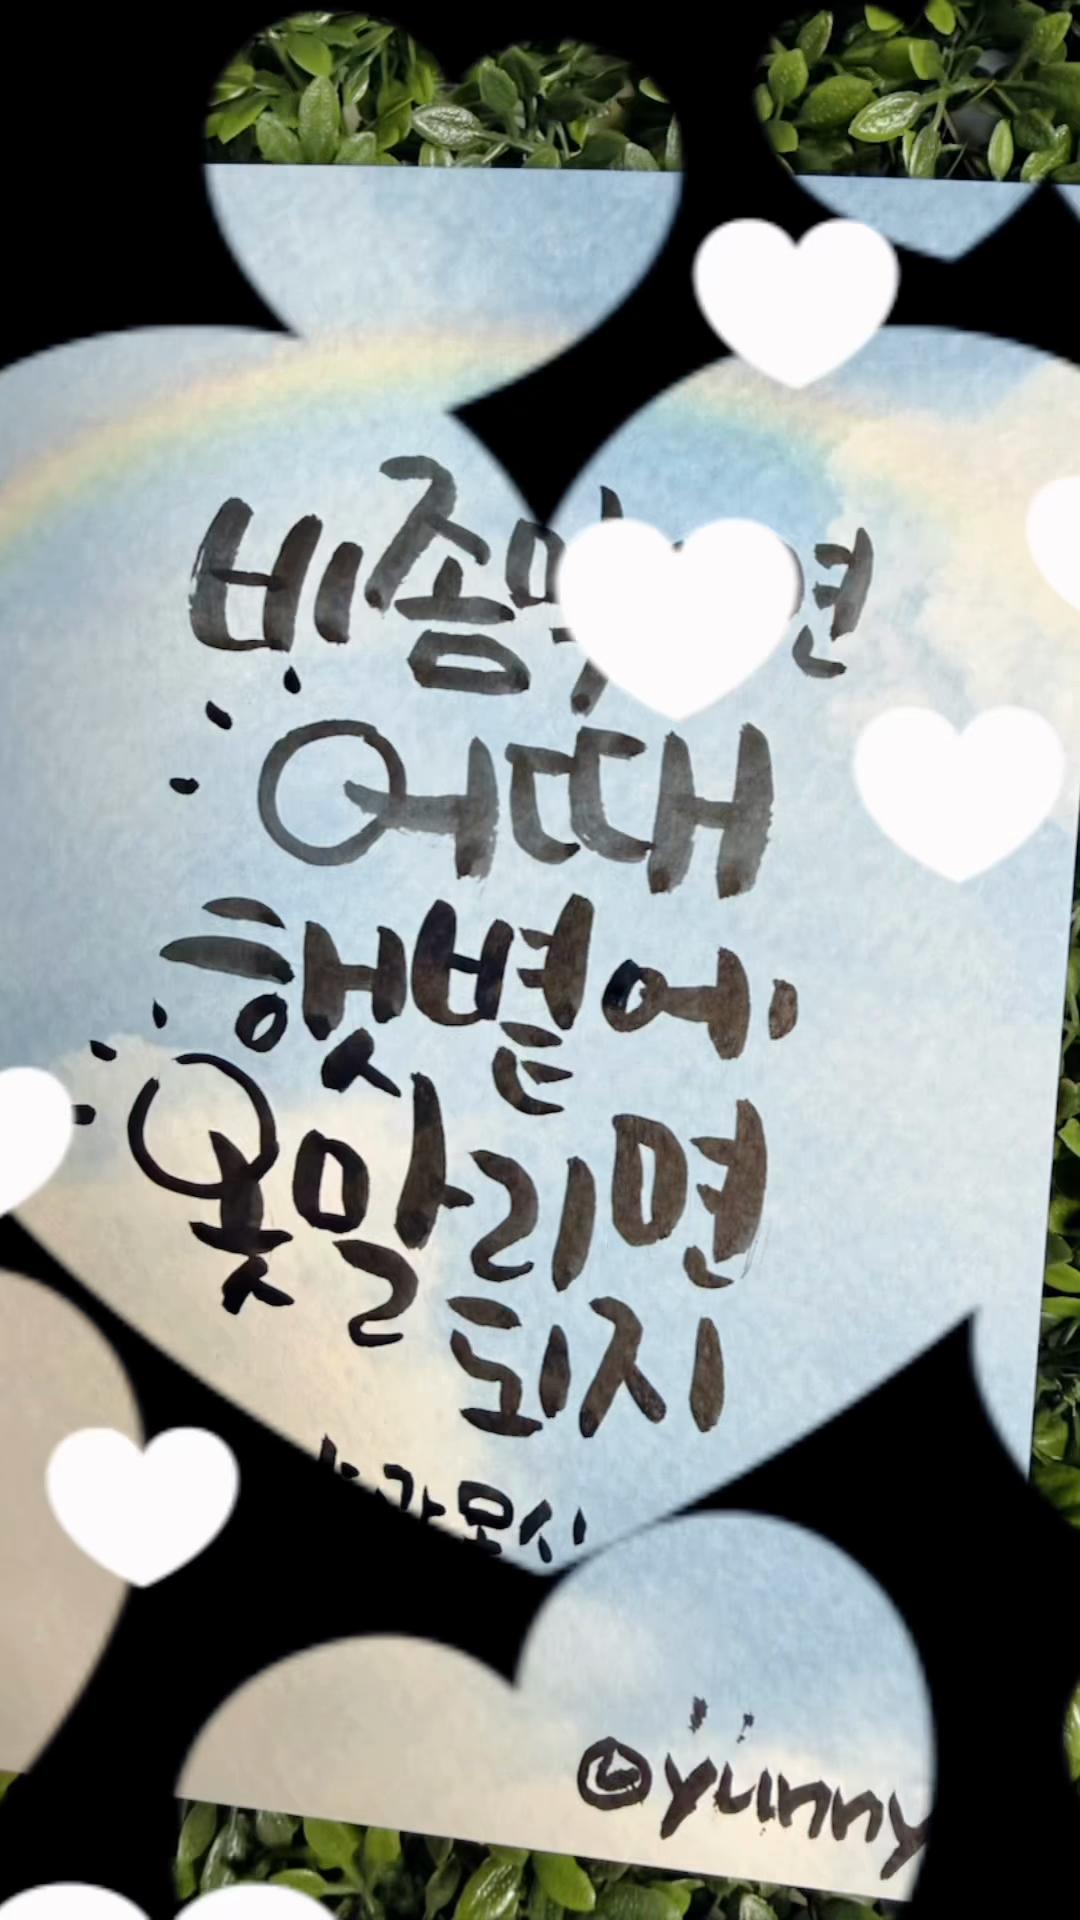 비 좀
어때
햇볕에
옷 말리면
되지
@yunny